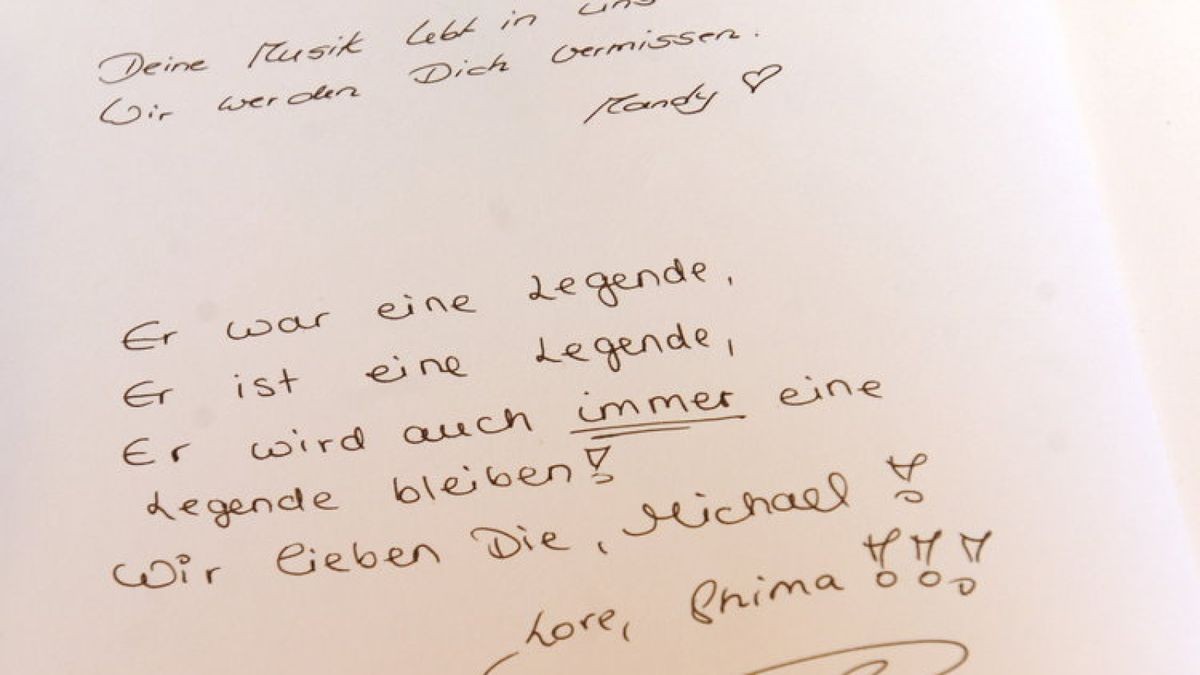 Deine Musik lebt in uns
Wir werden Dich vermissen.
Mandy ♡
Er war eine Legende,
Er ist eine Legende,
Er wird auch immer eine
Legende bleiben!
Wir lieben Die, Michael!
Love, Shima!!!